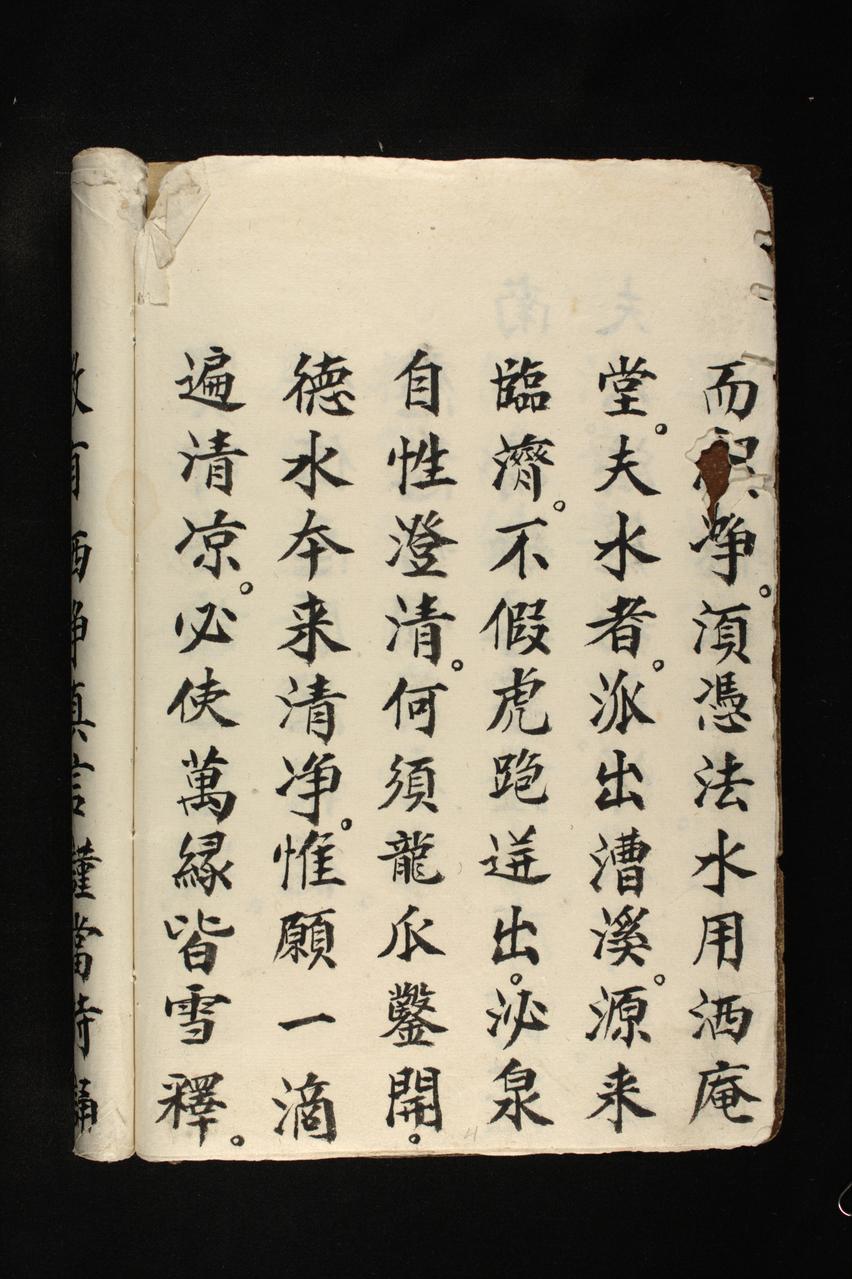 而净。湏憑法水用洒庵
堂。夫水者。派出漕溪。源来
臨濟。不假虎跑迸出。泌泉
自性澄清。何須龍爪鑿開。
德水夲来清净。惟願一滴
遍清凉。必使萬緣皆雪釋。
教有洒净真言謹當持誦